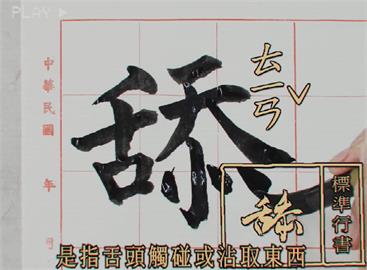 PLAY
中華民國 年 月
舔
ㄊㄧㄢˇ
標準行書
舔
是指舌頭觸碰或沾取東西